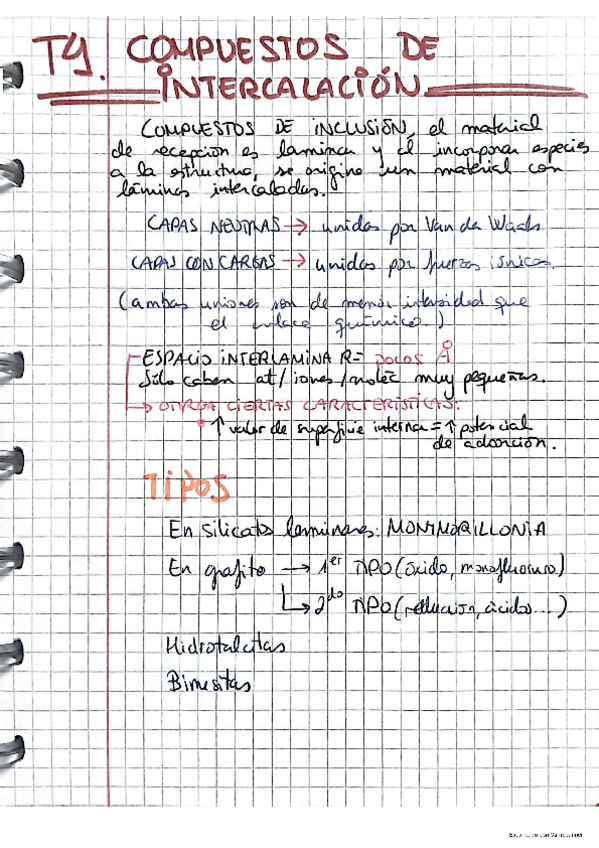 T4. COMPUESTOS DE
INTERCALACIÓN
COMPUESTOS DE INCLUSIÓN, el material
de recepción es laminar y al incorporar especies
a la estructura, se origina un material con
láminas intercaladas.
CAPAS NEUTRAS → unidas por Van der Waals
CAPAS CON CARGAS → unidas por fuerzas iónicas
(ambas uniones son de menor intensidad que
el enlace químico.)
ESPACIO INTERLAMINAR = pocos Å
Sólo caben at/iones/moléc muy pequeñas.
→ OTORGA CIERTAS CARACTERÍSTICAS:
• ↑ valor de superficie interna = ↑ potencial
de adsorción.
TIPOS
En silicatos laminares: MONTMORILLONITA
En grafito → 1er TIPO (óxido, monofluoruro)
↳ 2do TIPO (reducción, ácidos...)
Hidrotalcitas
Birnesitas